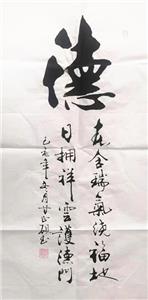 德
春含瑞氣福地
日拥祥雲護德門
己亥年冬月